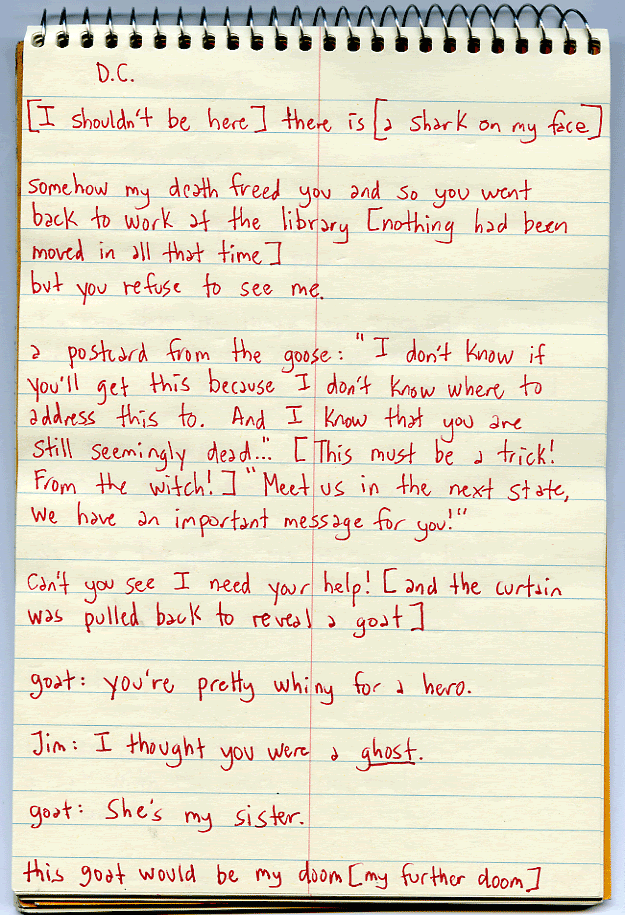 D.C.
[I shouldn't be here] there is [a shark on my face]
somehow my death freed you and so you went
back to work at the library [nothing had been
moved in all that time]
but you refuse to see me.
a postcard from the goose: "I don't know if
you'll get this because I don't know where to
address this to. And I know that you are
still seemingly dead..." [This must be a trick!
From the witch!] "Meet us in the next state,
we have an important message for you!"
Can't you see I need your help! [and the curtain
was pulled back to reveal a goat]
goat: you're pretty whiny for a hero.
Jim: I thought you were a ghost.
goat: She's my sister.
this goat would be my doom [my further doom]